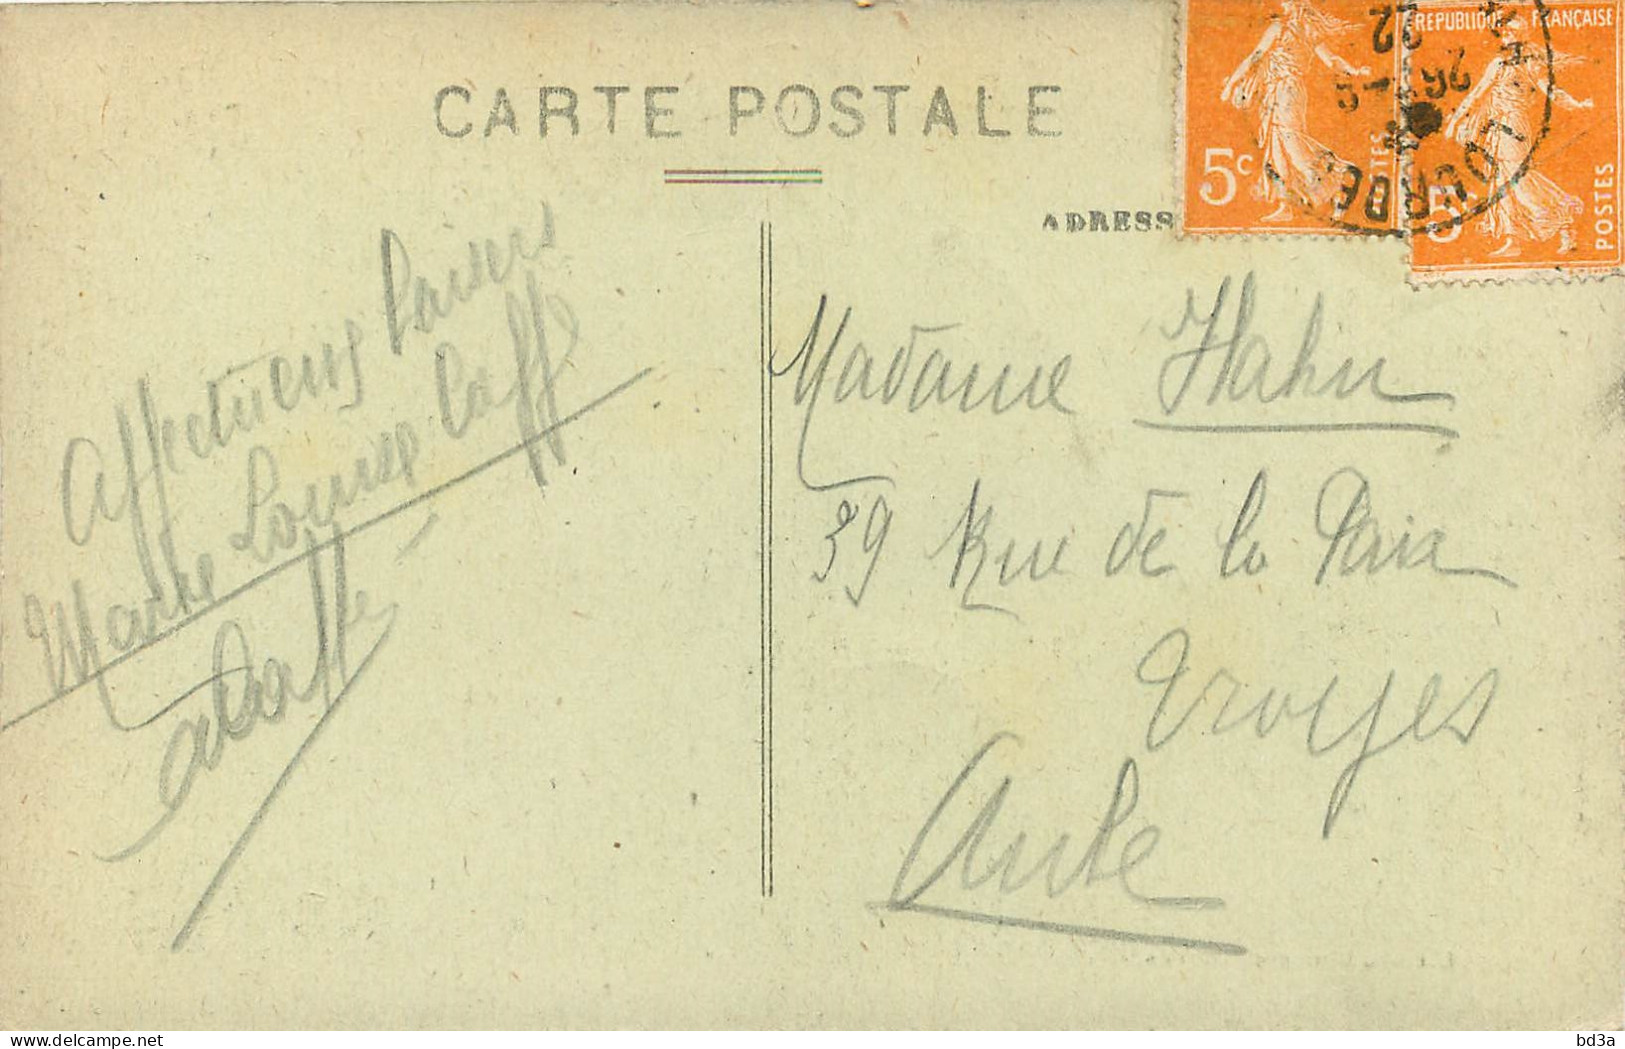 CARTE POSTALE
ADRESS
RÉPUBLIQUE FRANÇAISE
5c
POSTES
5
POSTES
LOURDES
26 - 5
22
Affectueux baisers
Marie Louise Laffé
Laffé
Madame Hahn
39 Rue de la Paix
Troyes
Aube
delcampe.net
bd3a